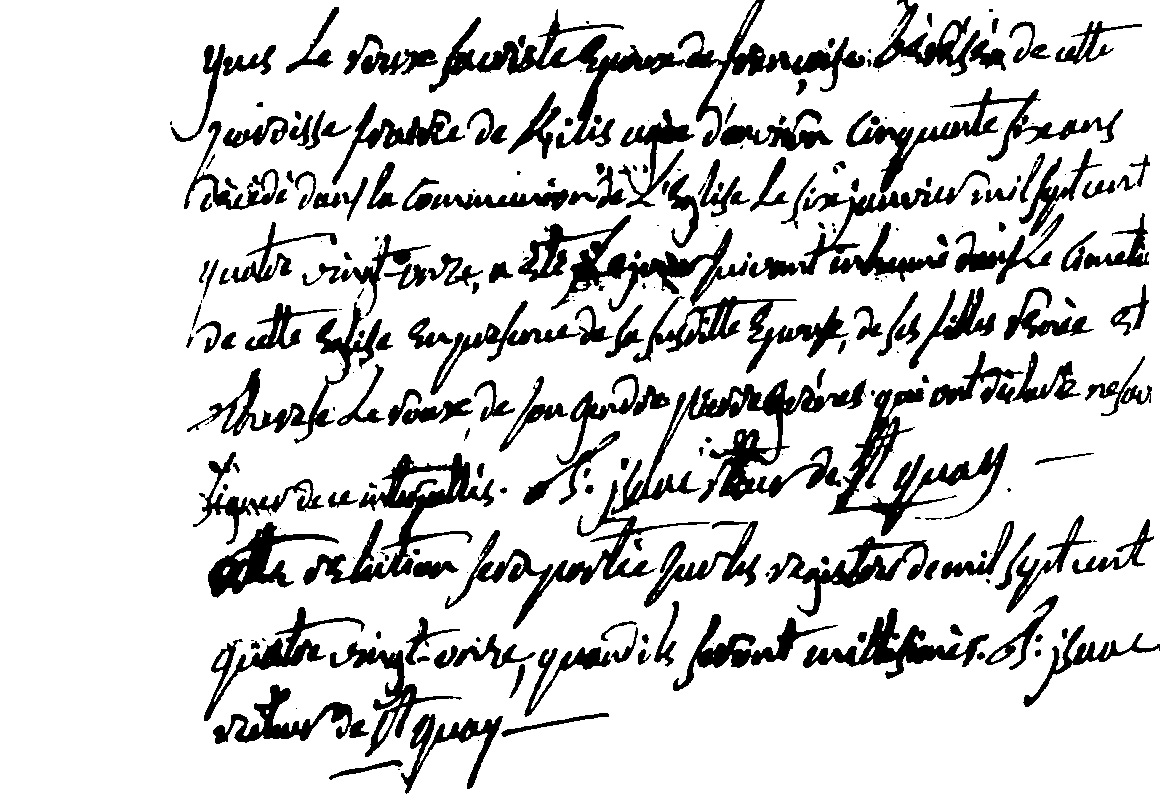 yves Le roux fariste Epoux de françoise de cette
paroisse frairie de agée d'environ cinquante six ans
décédé dans la communion de L'Eglise Le six janvier mil sept cent
quatre vingt-onze, a été Le jour suivant inhumé dans Le Cimetie
de cette Eglise En presence de sa susditte Epouse, de ses filles rénée Et
therese Le roux, de son gendre pierre qui ont déclaré ne sav
signer de ce interpellés. F: jsaac recteur de St quay
cette relation sera portée sur les registres de mil sept cent
quatre vingt-onze, quand ils seront millésimés. F: jsaac
recteur de St quay